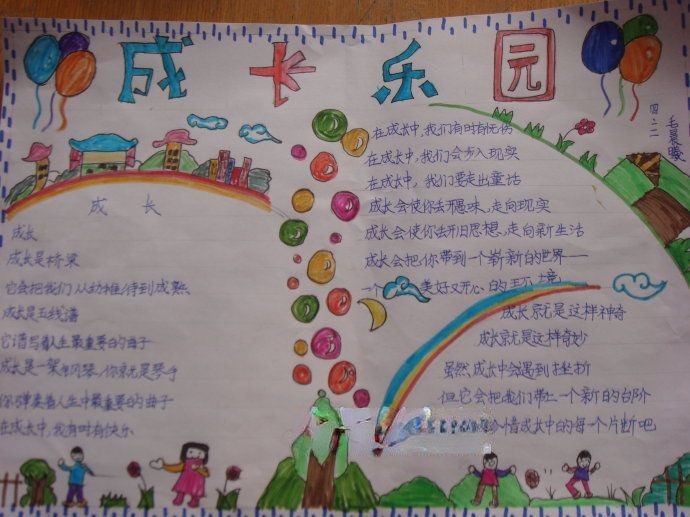 成长乐园
四二
毛晨
成长
成长
成长是桥梁
它会把我们从幼稚带到成熟
成长是五线谱
它谱写着人生最重要的曲子
成长是一架钢琴，你就是琴手
你弹奏着人生中最重要的曲子
在成长中，我有时有快乐
在成长中，我们有时有忧伤
在成长中，我们会步入现实
在成长中，我们要走出童话
成长会使你去开愚昧，走向现实
成长会使你去开旧思想，走向新生活
成长会把你带到一个崭新的世界——
一个 美好又开心的环境
成长就是这样神奇
成长就是这样奇妙
虽然成长中会遇到挫折
但它会把我们带上一个新的台阶
珍惜成长中的每一个片断吧